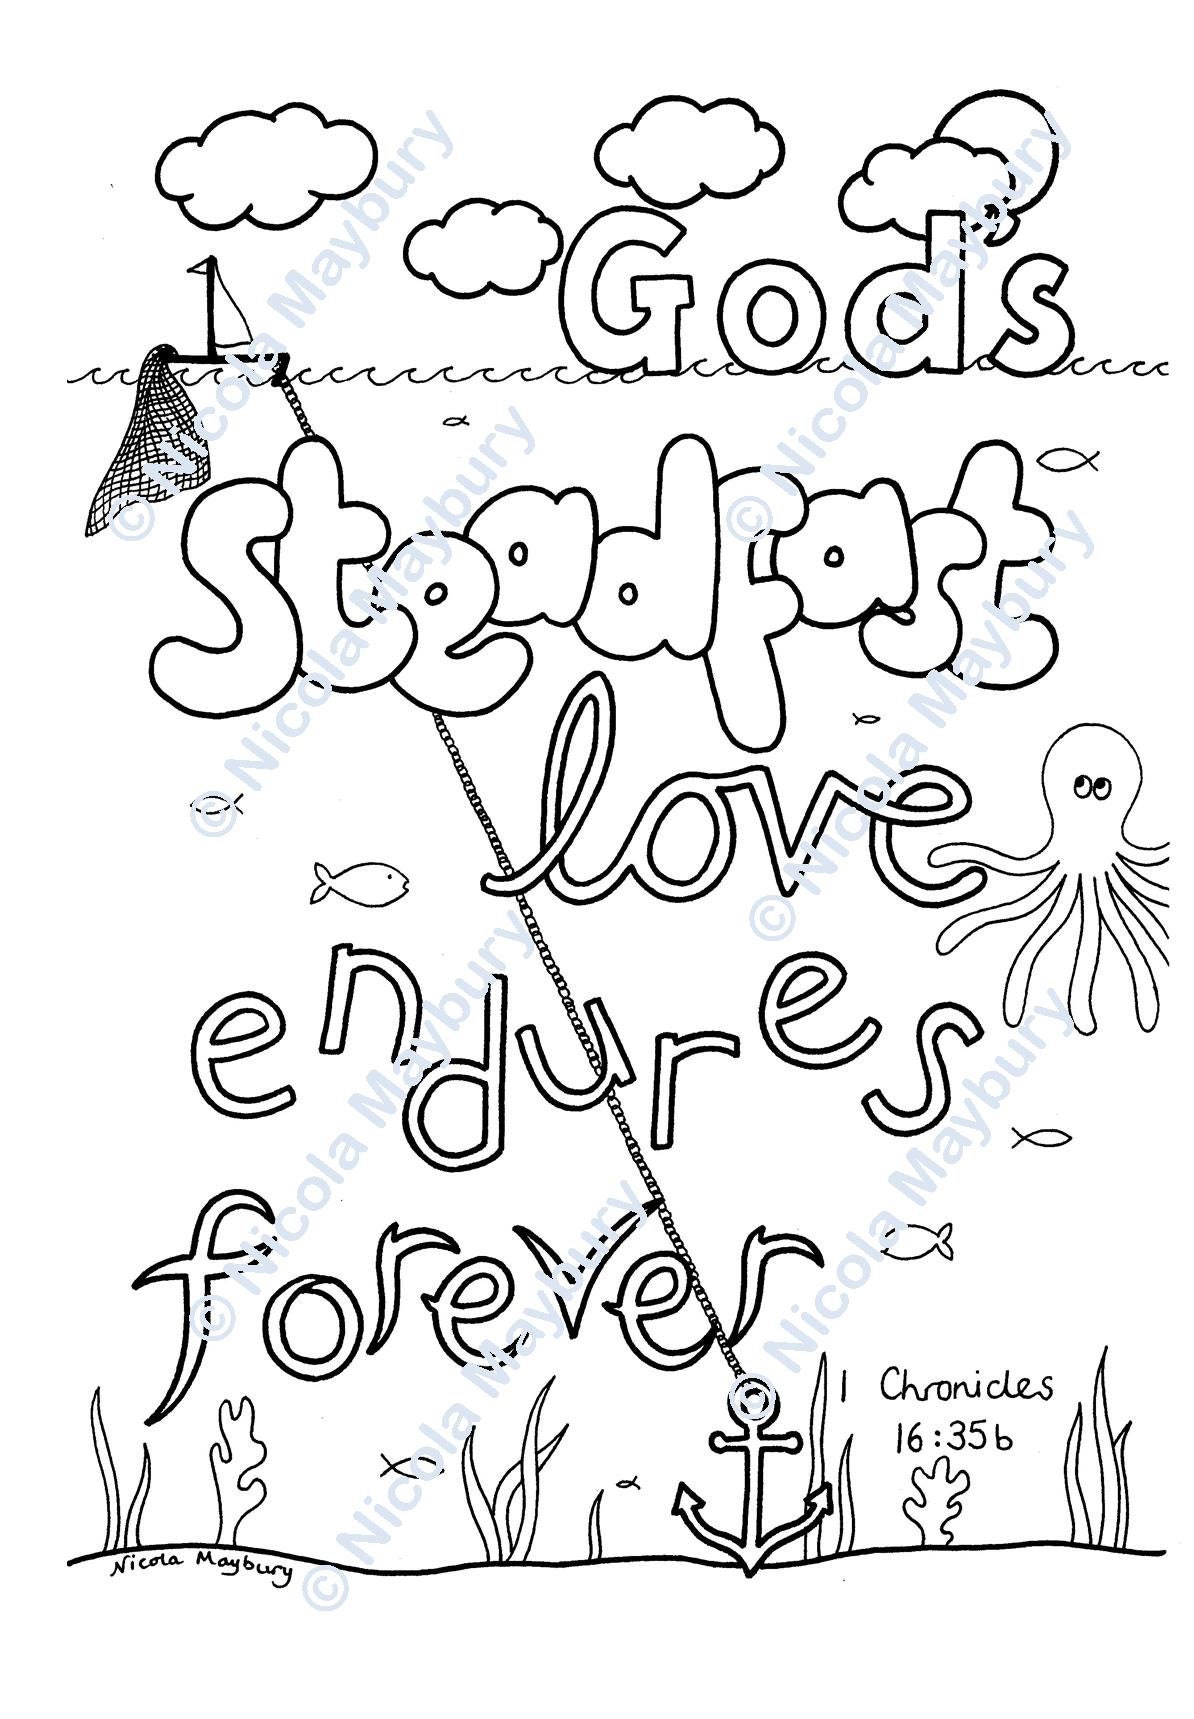 God's
steadfast
love
endures
forever
1 Chronicles
16:35b
Nicola Maybury
© Nicola Maybury
© Nicola Maybury
© Nicola Maybury
© Nicola Maybury
© Nicola Maybury
© Nicola Maybury
© Nicola Maybury
© Nicola Maybury